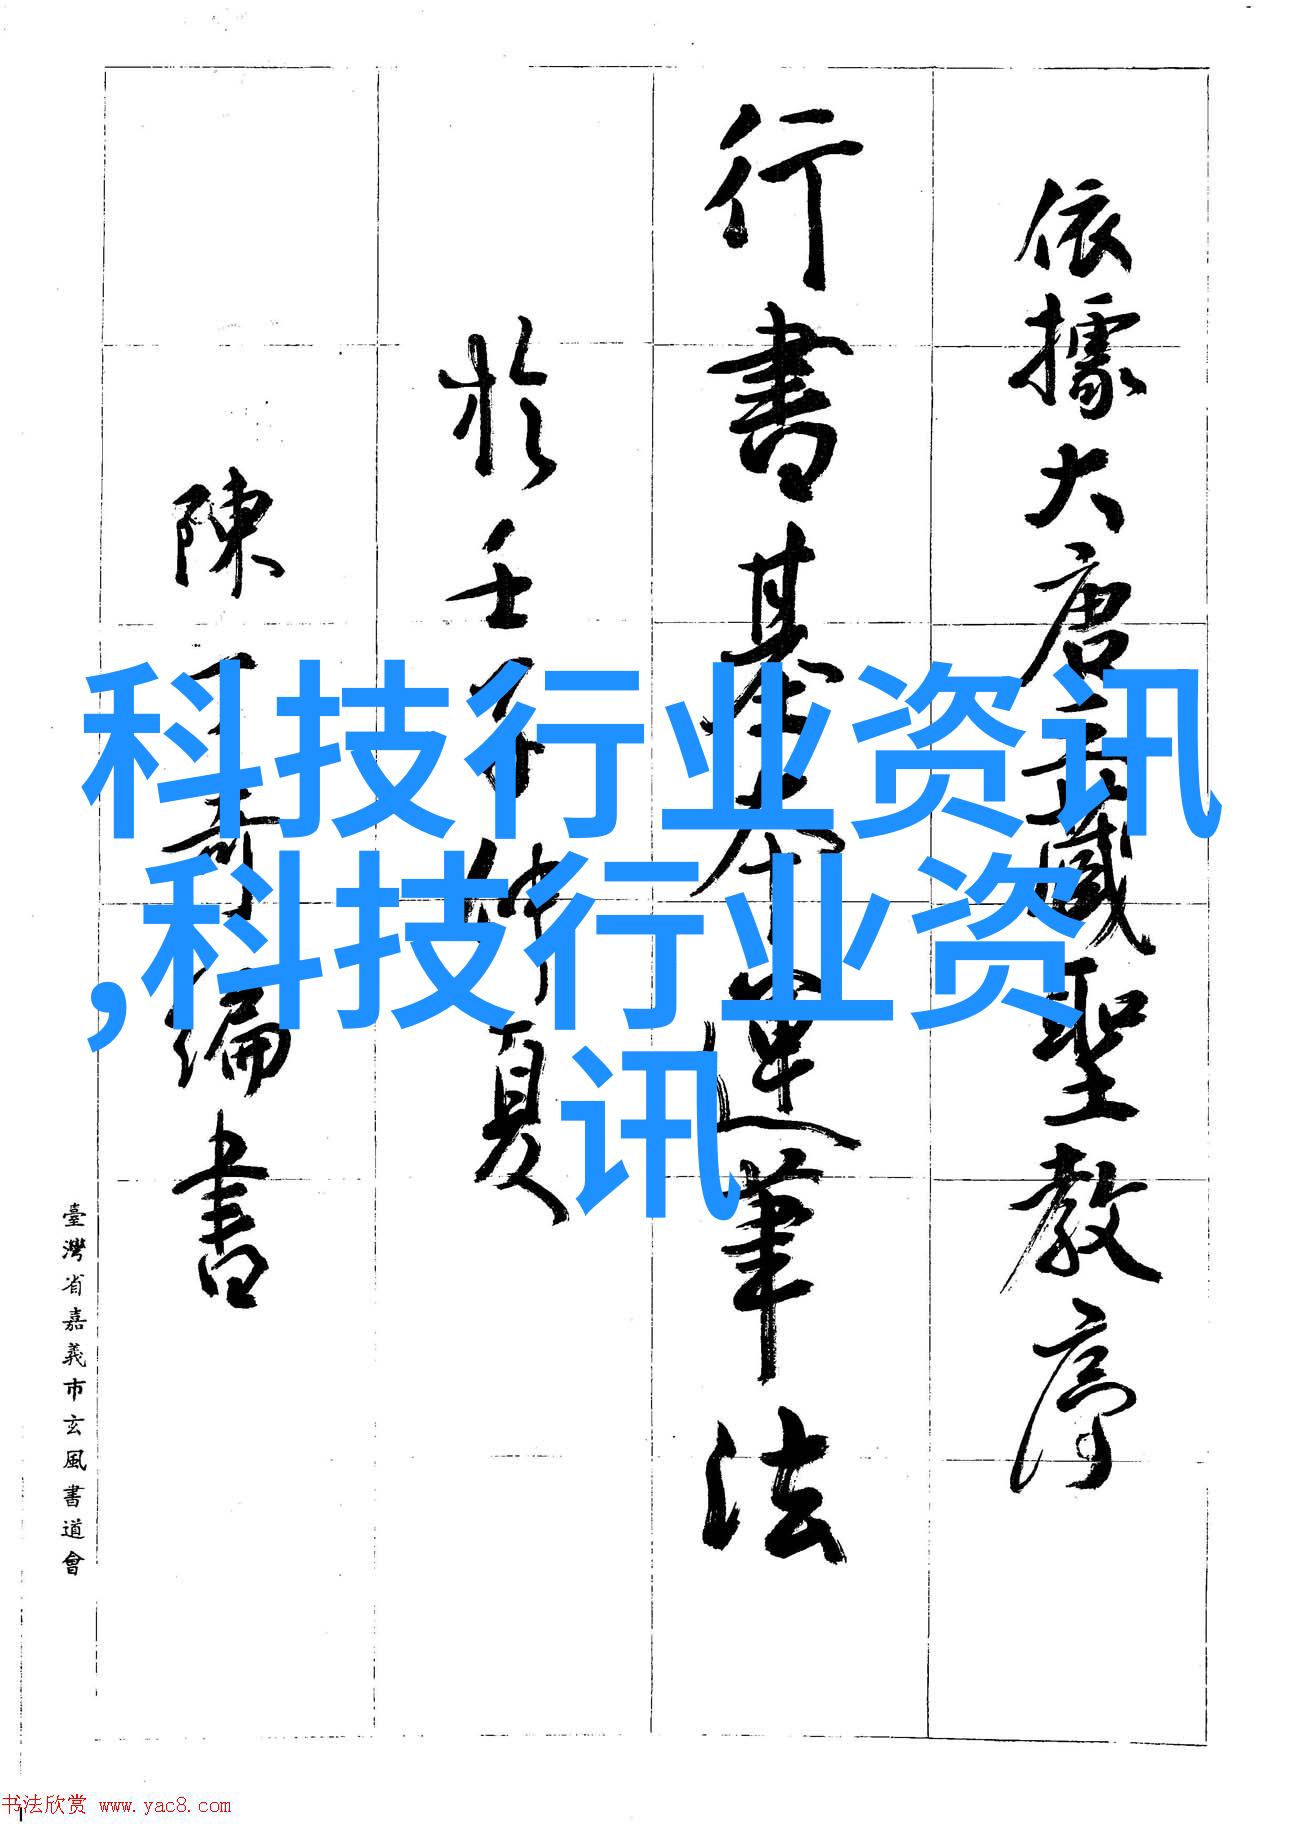 依據大唐三藏聖教序
行書基本運筆法
於壬子仲夏
陳丁奇編書
臺灣省嘉義市玄風書道會
科技行业资讯
,科技行业资
讯
书法欣赏 www.yac8.com
1